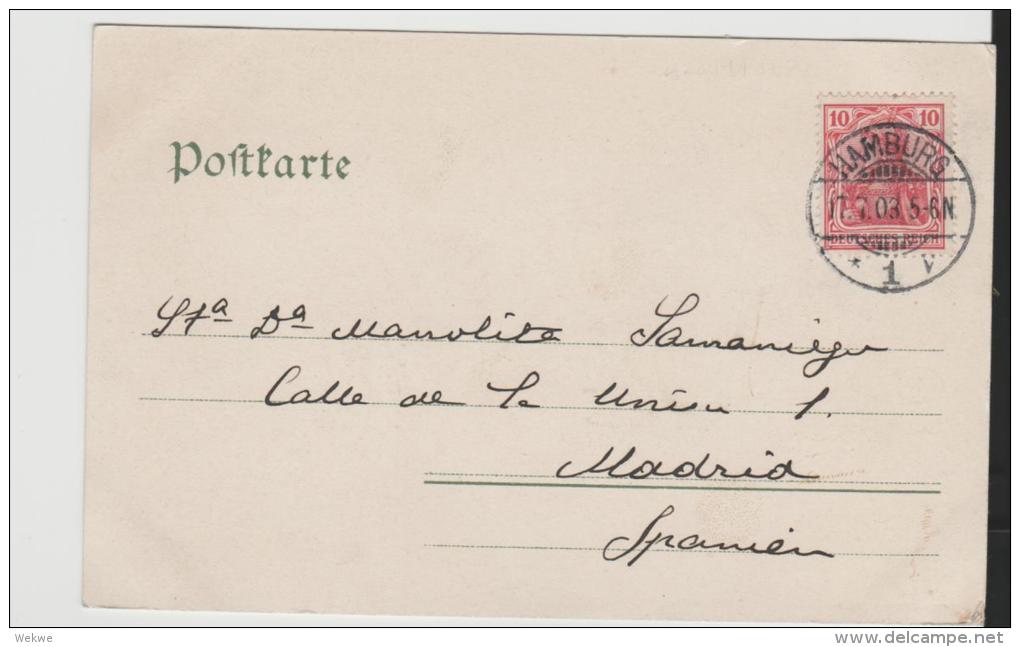 Postkarte
10 10
HAMBURG
17.7.03 5-6N
DEUTSCHES REICH
* 1 V
Sta Da Manolita Samaniego
Calle de la Unión 1.
Madrid
Spanien
Wekwe
www.delcampe.net